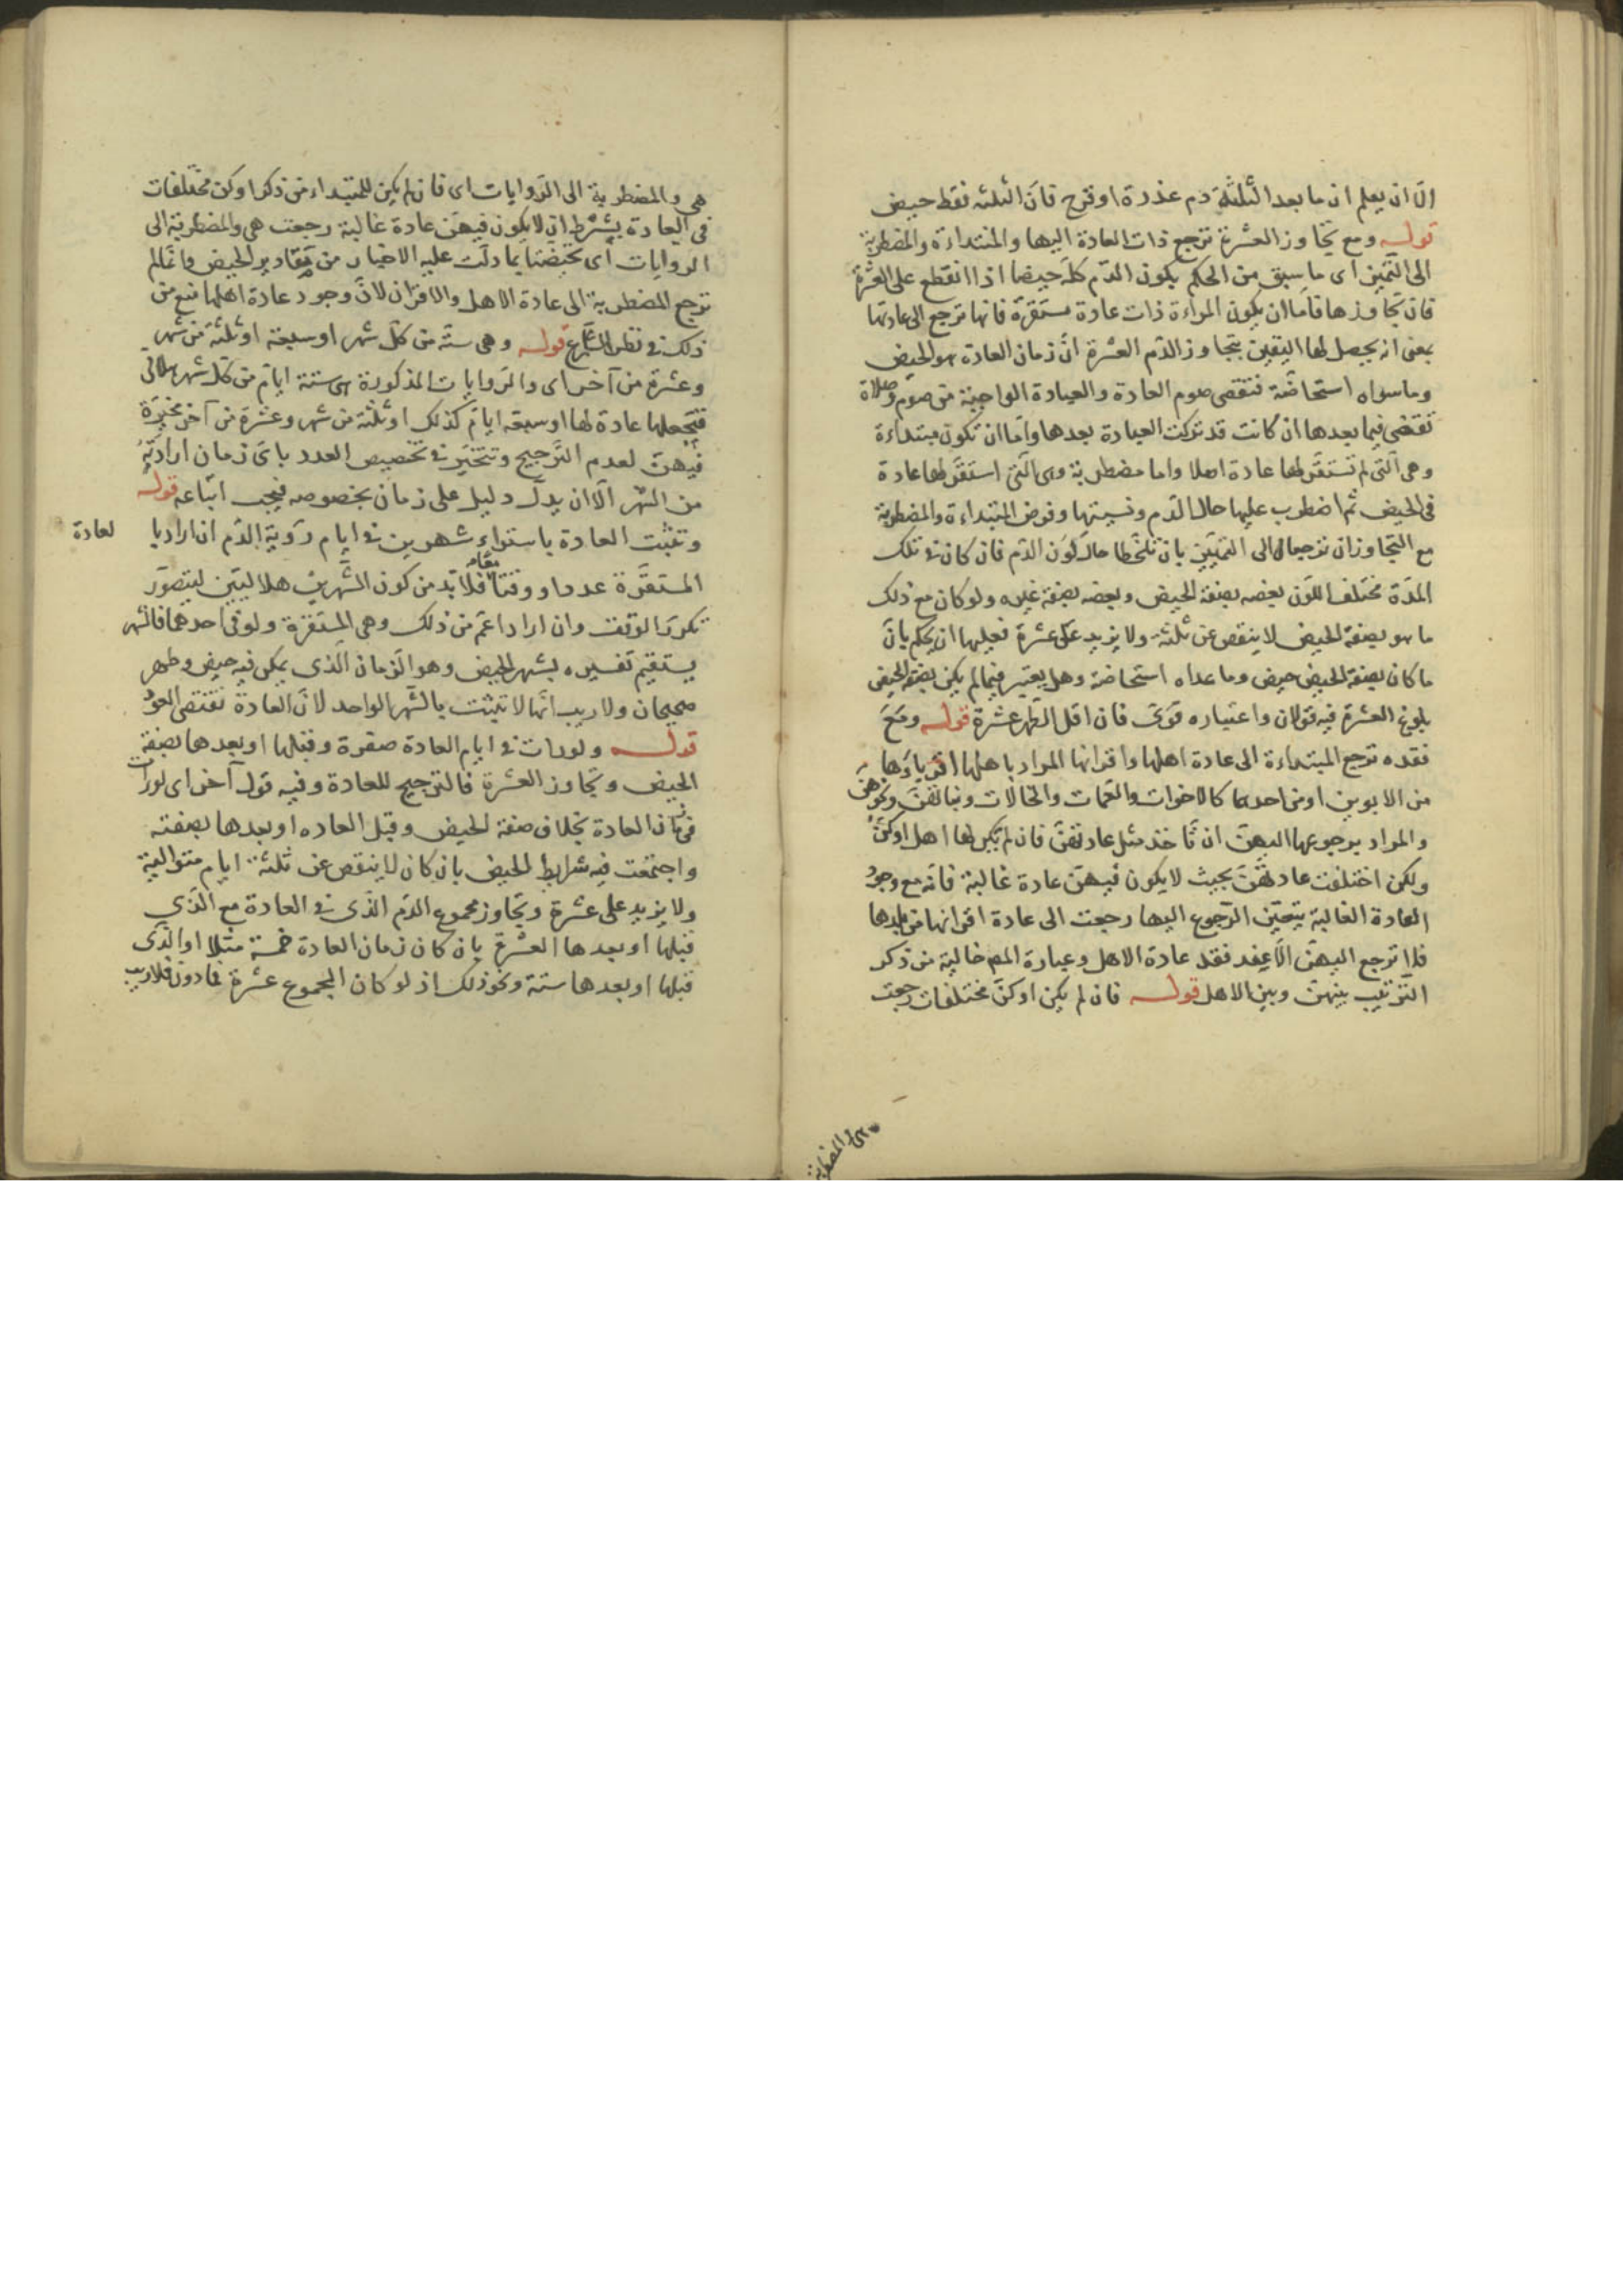 الا ان يعلم ان ما بعد الثلثة دم عذرة او قرح فان الثلثه فقط حيض
قوله ومع تجاوز العشرة ترجع ذات العادة اليها والمبتداءة والمضطربة
الى التميز اى ما سبق من الحكم بكون الدم كله حيضا اذا انقطع على العشرة
فان تجاوزها فاما ان يكون المراءة ذات عادة مستقرة فانها ترجع الى عادتها
بمعنى انه يحصل لها اليقين بتجاوز الدم العشرة ان زمان العادة هو الحيض
وما سواه استحاضة فتقضى صوم العادة والعبادة الواجبة من صوم وصلاة
تقضى فيما بعدها ان كانت قد تركت العبادة بعدها واما ان تكون مبتداءة
وهى التى لم تستقر لها عادة اصلا واما مضطربة وهى التى استقر لها عادة
فى الحيض ثم اضطرب عليها حال الدم ونسيتها وفرض المبتداءة والمضطربة
مع التجاوز ان ترجعا الى التمييز بان تلحظا حال لون الدم فان كان فى تلك
المدة مختلف اللون بعضه بصفة الحيض وبعضه بصفة غيره ولو كان مع ذلك
ما هو بصفة الحيض لا ينقص عن ثلثة ولا يزيد على عشرة فعليها ان يحكم بان
ما كان بصفة الحيض حيض وما عداه استحاضة وهل يعتبر فيما لم يكن بصفة الحيض
بلوغ العشرة فيه قولان واعتباره قوى فان اقل الطهر عشرة قوله ومع
فقده ترجع المبتداءة الى عادة اهلها واقرانها المراد باهلها اقرباؤها
من الابوين او من احدهما كالاخوات والعمات والخالات وبناتهن ونحوهن
والمراد برجوعها اليهن ان تاخذ مثل عادتهن فان لم تكن لها اهل او كن
ولكن اختلفت عادتهن بحيث لا يكون فيهن عادة غالبة فانه مع وجود
العادة الغالبة يتعين الرجوع اليها رجعت الى عادة اقرانها من بلدها
فلا ترجع اليهن الا عند فقد عادة الاهل وعبارة المص خالية من ذكر
الترتيب بينهن وبين الاهل قوله فان لم يكن او كن مختلفات رجعت
هى والمضطربة
هى والمضطربة الى الروايات اى فان لم يكن للمبتداءة من ذكر او كن مختلفات
فى العادة بشرط ان لا يكون فيهن عادة غالبة رجعت هى والمضطربة الى
الروايات اى تحيضتا بما دلت عليه الاخبار من مقادير الحيض وانما لم
ترجع المضطربة الى عادة الاهل والاقران لان وجود عادة اهلها منع من
ذلك فى نظر الشارع قوله وهى ستة من كل شهر او سبعة او ثلثة من شهر
وعشرة من آخر اى والروايات المذكورة هى ستة ايام من كل شهر هلالى
فتجعلها عادة لها او سبعة ايام كذلك او ثلثة من شهر وعشرة من آخر مخيرة
فيهن لعدم الترجيح وتتخير فى تخصيص العدد باى زمان ارادته
من الشهر الا ان يدل دليل على زمان بخصوصه فيجب اتباعه قوله
وتثبت العادة باستواء شهرين فى ايام رؤية الدم ان اراد با لعادة
المستقرة عددا ووقتا معا فلا بد من كون الشهرين هلاليين ليتصور
تكرر الوقت وان اراد اعم من ذلك وهى المستقرة ولو فى احدهما فالشهر
يستقيم تفسيره بشهر الحيض وهو الزمان الذى يمكن فيه حيض وطهر
صحيحان ولا ريب انها لا تثبت بالشهر الواحد لان العادة تقتضى العود
قوله ولو رات فى ايام العادة صفرة وقبلها او بعدها بصفة
الحيض وتجاوز العشرة فالترجيح للعادة وفيه قول آخر اى لو رات
فى زمان العادة بخلاف صفة الحيض وقبل العاده او بعدها بصفته
واجتمعت فيه شرايط الحيض بان كان لا ينقص عن ثلثة ايام متوالية
ولا يزيد على عشرة وتجاوز مجموع الدم الذى فى العادة مع الذى
قبلها او بعدها العشرة بان كان زمان العادة خمسة مثلا او الذى
قبلها او بعدها ستة ونحو ذلك اذ لو كان المجموع عشرة فما دون فلا ريب